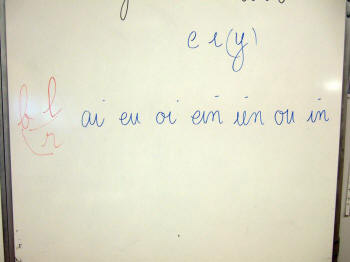 e i (y)
b l
r
ai eu oi ein ien ou in